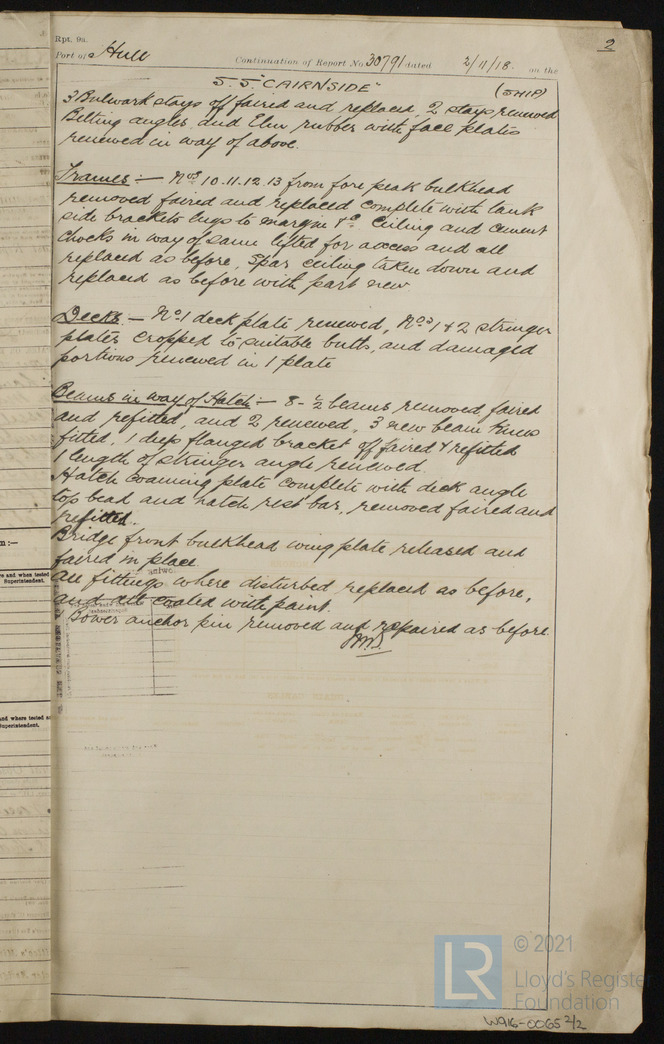 2
Rpt. 9a.
Port of Hull Continuation of Report No. 30791 dated 2/11/18. on the
S.S. "CAIRNSIDE" (SHIP)
3 Bulwark stays off faired and replaced, 2 stays renewed
Belting angles and Elm rubber with face plates
renewed in way of above.
Frames:— Nos 10.11.12.13 from fore peak bulkhead
removed faired and replaced complete with tank
side brackets lugs to margin &c. Ceiling and cement
chocks in way of same lifted for access and all
replaced as before, Spar ceiling taken down and
replaced as before with part new
Decks.— No 1 deck plate renewed, Nos 1 & 2 stringer
plates cropped to suitable butts, and damaged
portions renewed in 1 plate
Beams in way of Hatch:— 8-½ beams removed, faired
and refitted, and 2 renewed, 3 new beam knees
fitted, 1 deep flanged bracket off faired & refitted
1 length of stringer angle renewed.
Hatch coaming plate complete with deck angle
top bead and hatch rest bar, removed faired and
refitted.
Bridge front bulkhead wing plate released and
faired in place.
All fittings where disturbed replaced as before,
and all coated with paint.
1 Bower anchor pin removed and repaired as before.
n:—
re and when tested
Superintendent.
and where tested a
Superintendent.
LR
© 2021
Lloyd's Register
Foundation
W916-0065 2/2